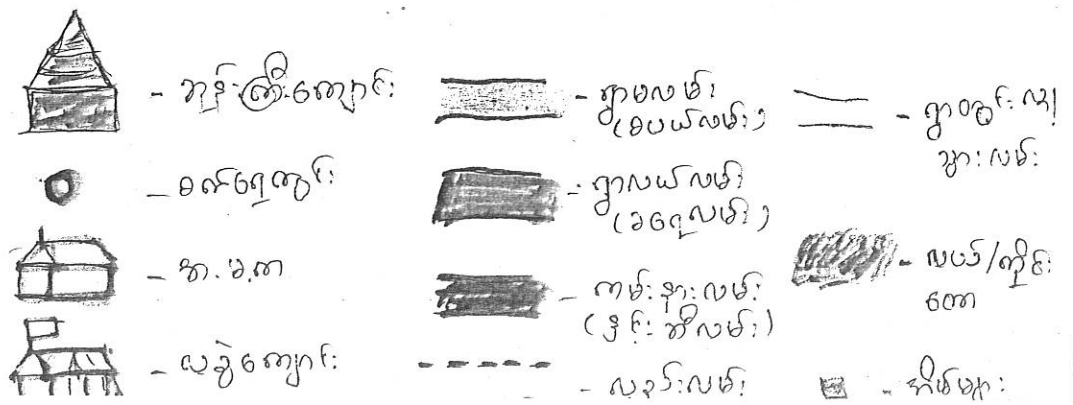 - ဘုန်းကြီးကျောင်း
- စက်ရေတွင်း
- အ.မ.က
- ယူခွဲကျောင်း
- ရွာမလမ်း
(စပယ်လမ်း)
- ရွာလယ်လမ်း
(ခရေလမ်း)
- ကမ်းနားလမ်း
(နှင်းဆီလမ်း)
- လူစည်းလမ်း
- ရွာတွင်းလူ
သွားလမ်း
- လယ်/ကိုင်း
တော
- အိမ်များ